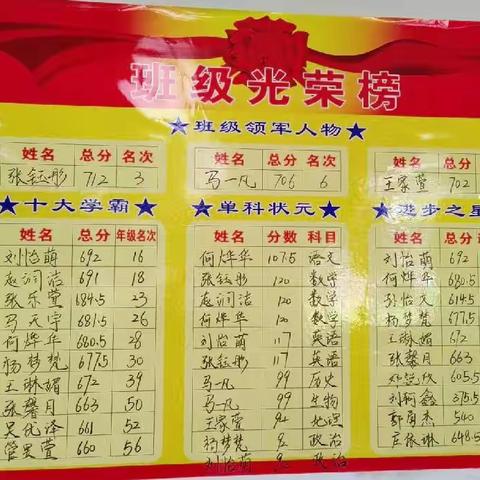 班级光荣榜
★班级领军人物★
姓名 总分 名次
张钰彤 712 3
姓名 总分 名次
马一凡 706 6
姓名 总分
王家萱 702
★十大学霸★
姓名 总分 年级名次
刘怡萌 692 16
赵润洁 691 18
张乐萱 684.5 23
马天宇 681.5 26
何烨华 680.5 28
杨梦梵 677.5 30
王琳媚 672 39
张馨月 663 50
吴优泽 661 52
管昊萱 660 56
★单科状元★
姓名 分数 科目
何烨华 107.5 语文
张钰彤 120 数学
赵润洁 120 数学
何烨华 120 数学
刘怡萌 117 英语
张钰彤 117 英语
马一凡 99 历史
马一凡 99 生物
王家萱 地理
杨梦梵 政治
刘怡萌 政治
★进步之星
姓名 总分
刘怡萌 692
何烨华 680.5
孙怡文 614.5
杨梦梵 677.5
王琳媚 672
张馨月 663
605.5
刘柯鑫 375.5
郭雨杰 540
依琳 648.5